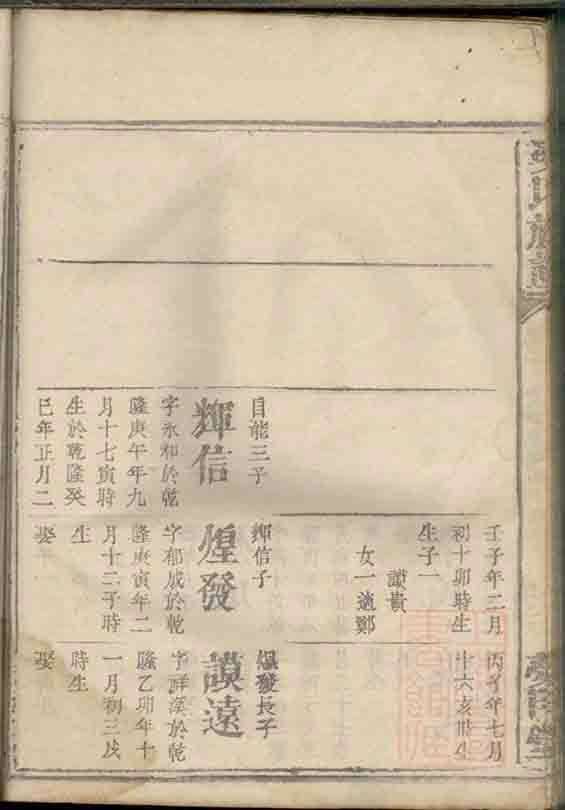 壬子年二月
初十卯時生
生子一
讃貴
女一適鄭
丙子年七月
十六亥時生
目能三子
輝信
字永和於乾
隆庚午年九
月十七寅時
生於乾隆癸
巳年正月二
輝信子
煌發
字郁成於乾
隆庚寅年二
月十二子時
生
娶
煌發長子
讃遠
於乾
隆乙卯年十
一月初三戌
時生
娶